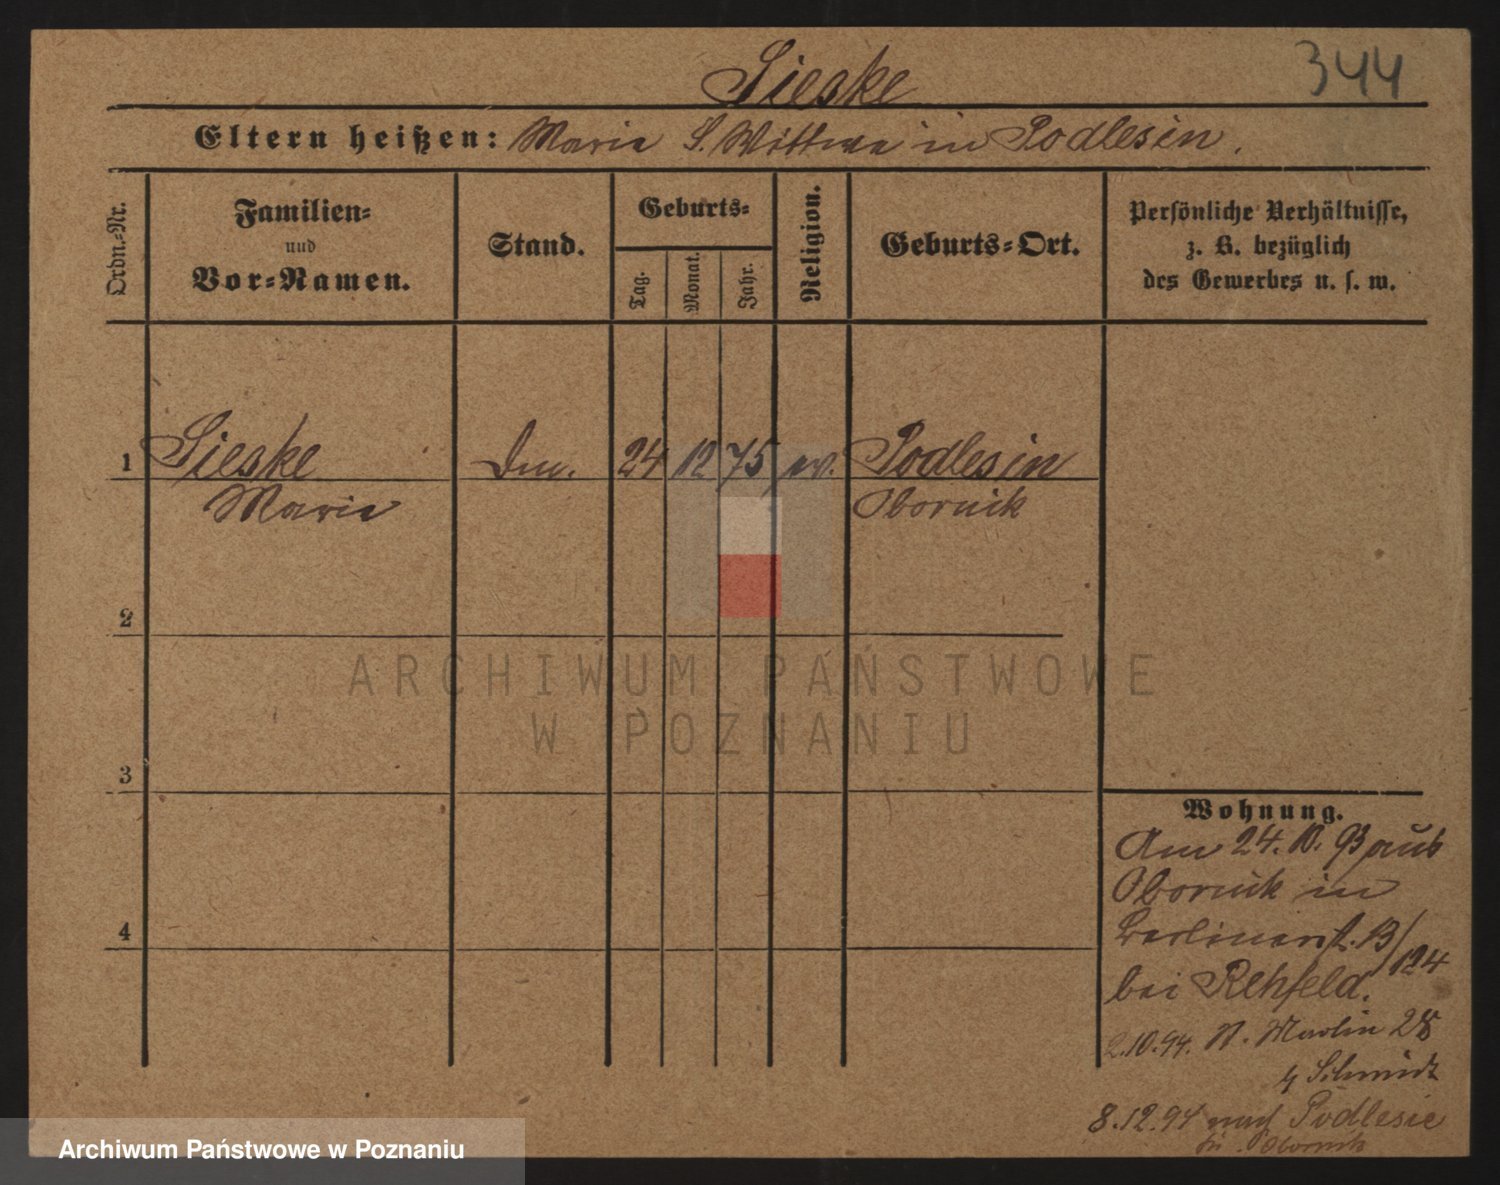 Sieske
344
Eltern heißen: Marie S. Wittwe in Podlesin.
Ordn.-Nr.
Familien-
und
Vor-Namen.
Stand.
Geburts-
Tag.
Monat.
Jahr.
Religion.
Geburts-Ort.
Persönliche Verhältnisse,
z. B. bezüglich
des Gewerbes u. s. w.
1 Sieske 24 12 75 ev. Podlesin
Marie Obornik
2
3
4
Wohnung.
Am 24. 10. 93 aus
Obornik in
Berlinerst. 13/
124
bei Rehfeld.
2.10.94. St. Martin 28
Schmidt
8.12.94 nach Podlesie
Obornik
ARCHIWUM PAŃSTWOWE
W POZNANIU
Archiwum Państwowe w Poznaniu